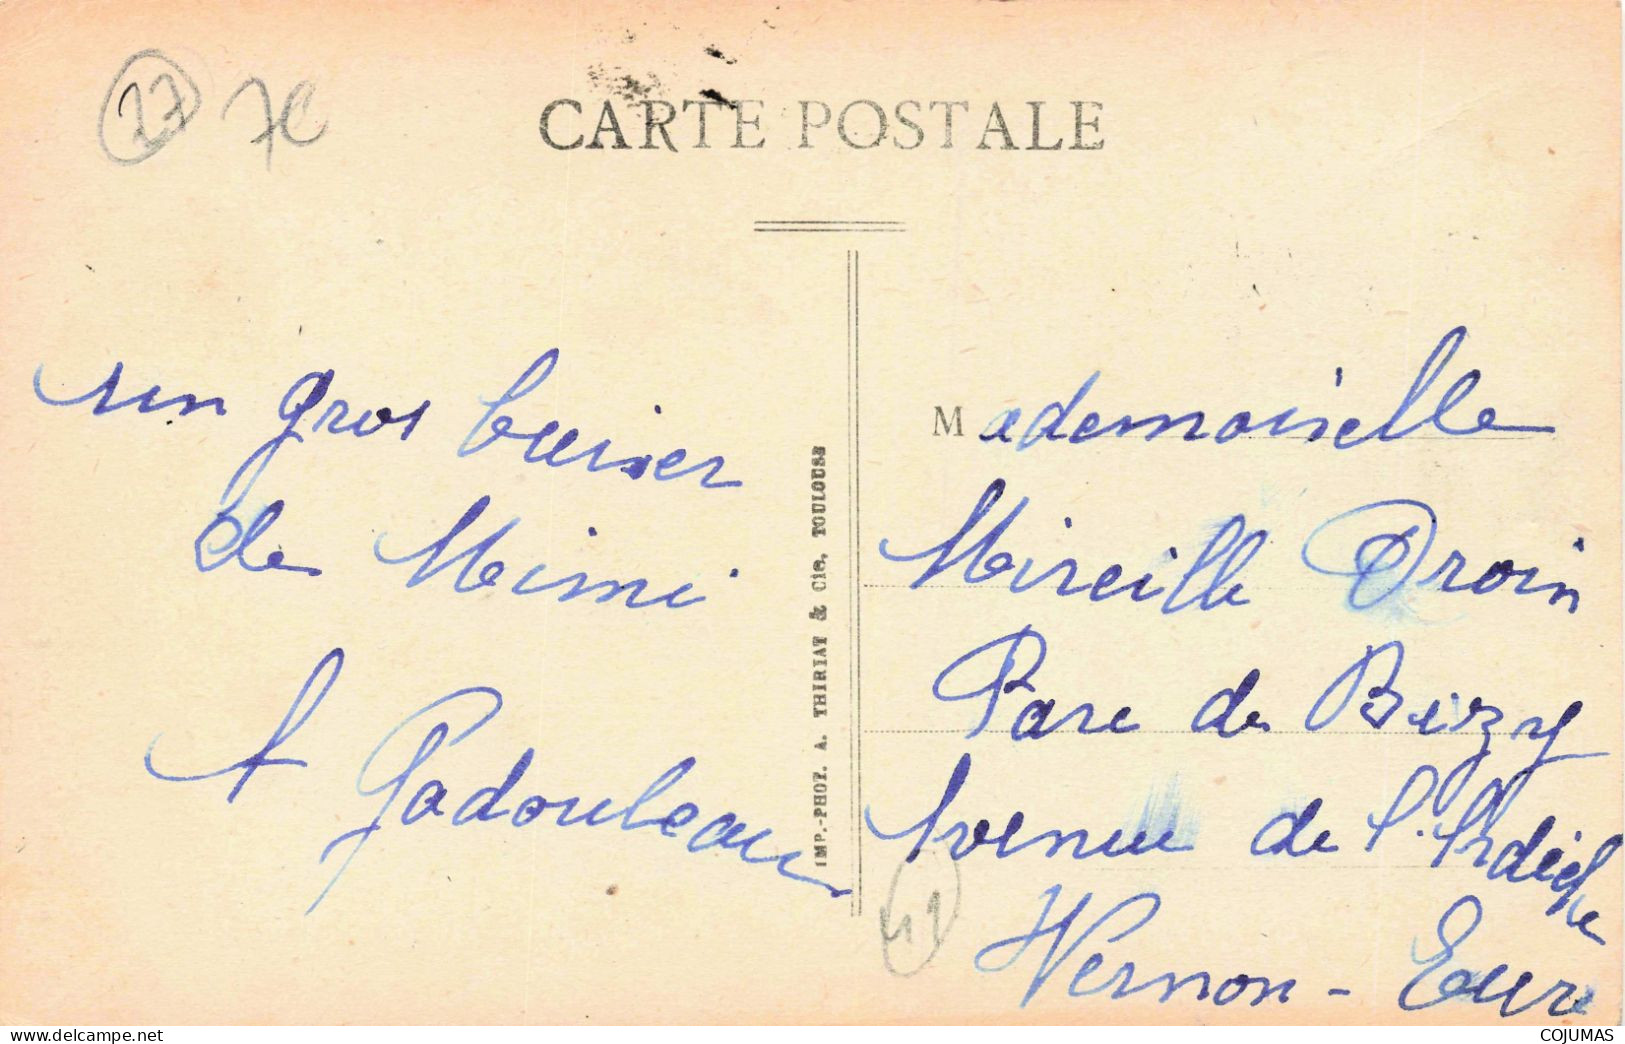 27 7€
CARTE POSTALE
un gros baiser
de Mimi
A Padouleau
IMP.-PHOT. A. THIRIAT & Cie. TOULOUSE
Mademoiselle
Mireille Droin
Parc de Bizy
Avenue de l'Ardèche
Vernon - Eure
41
COJUMAS